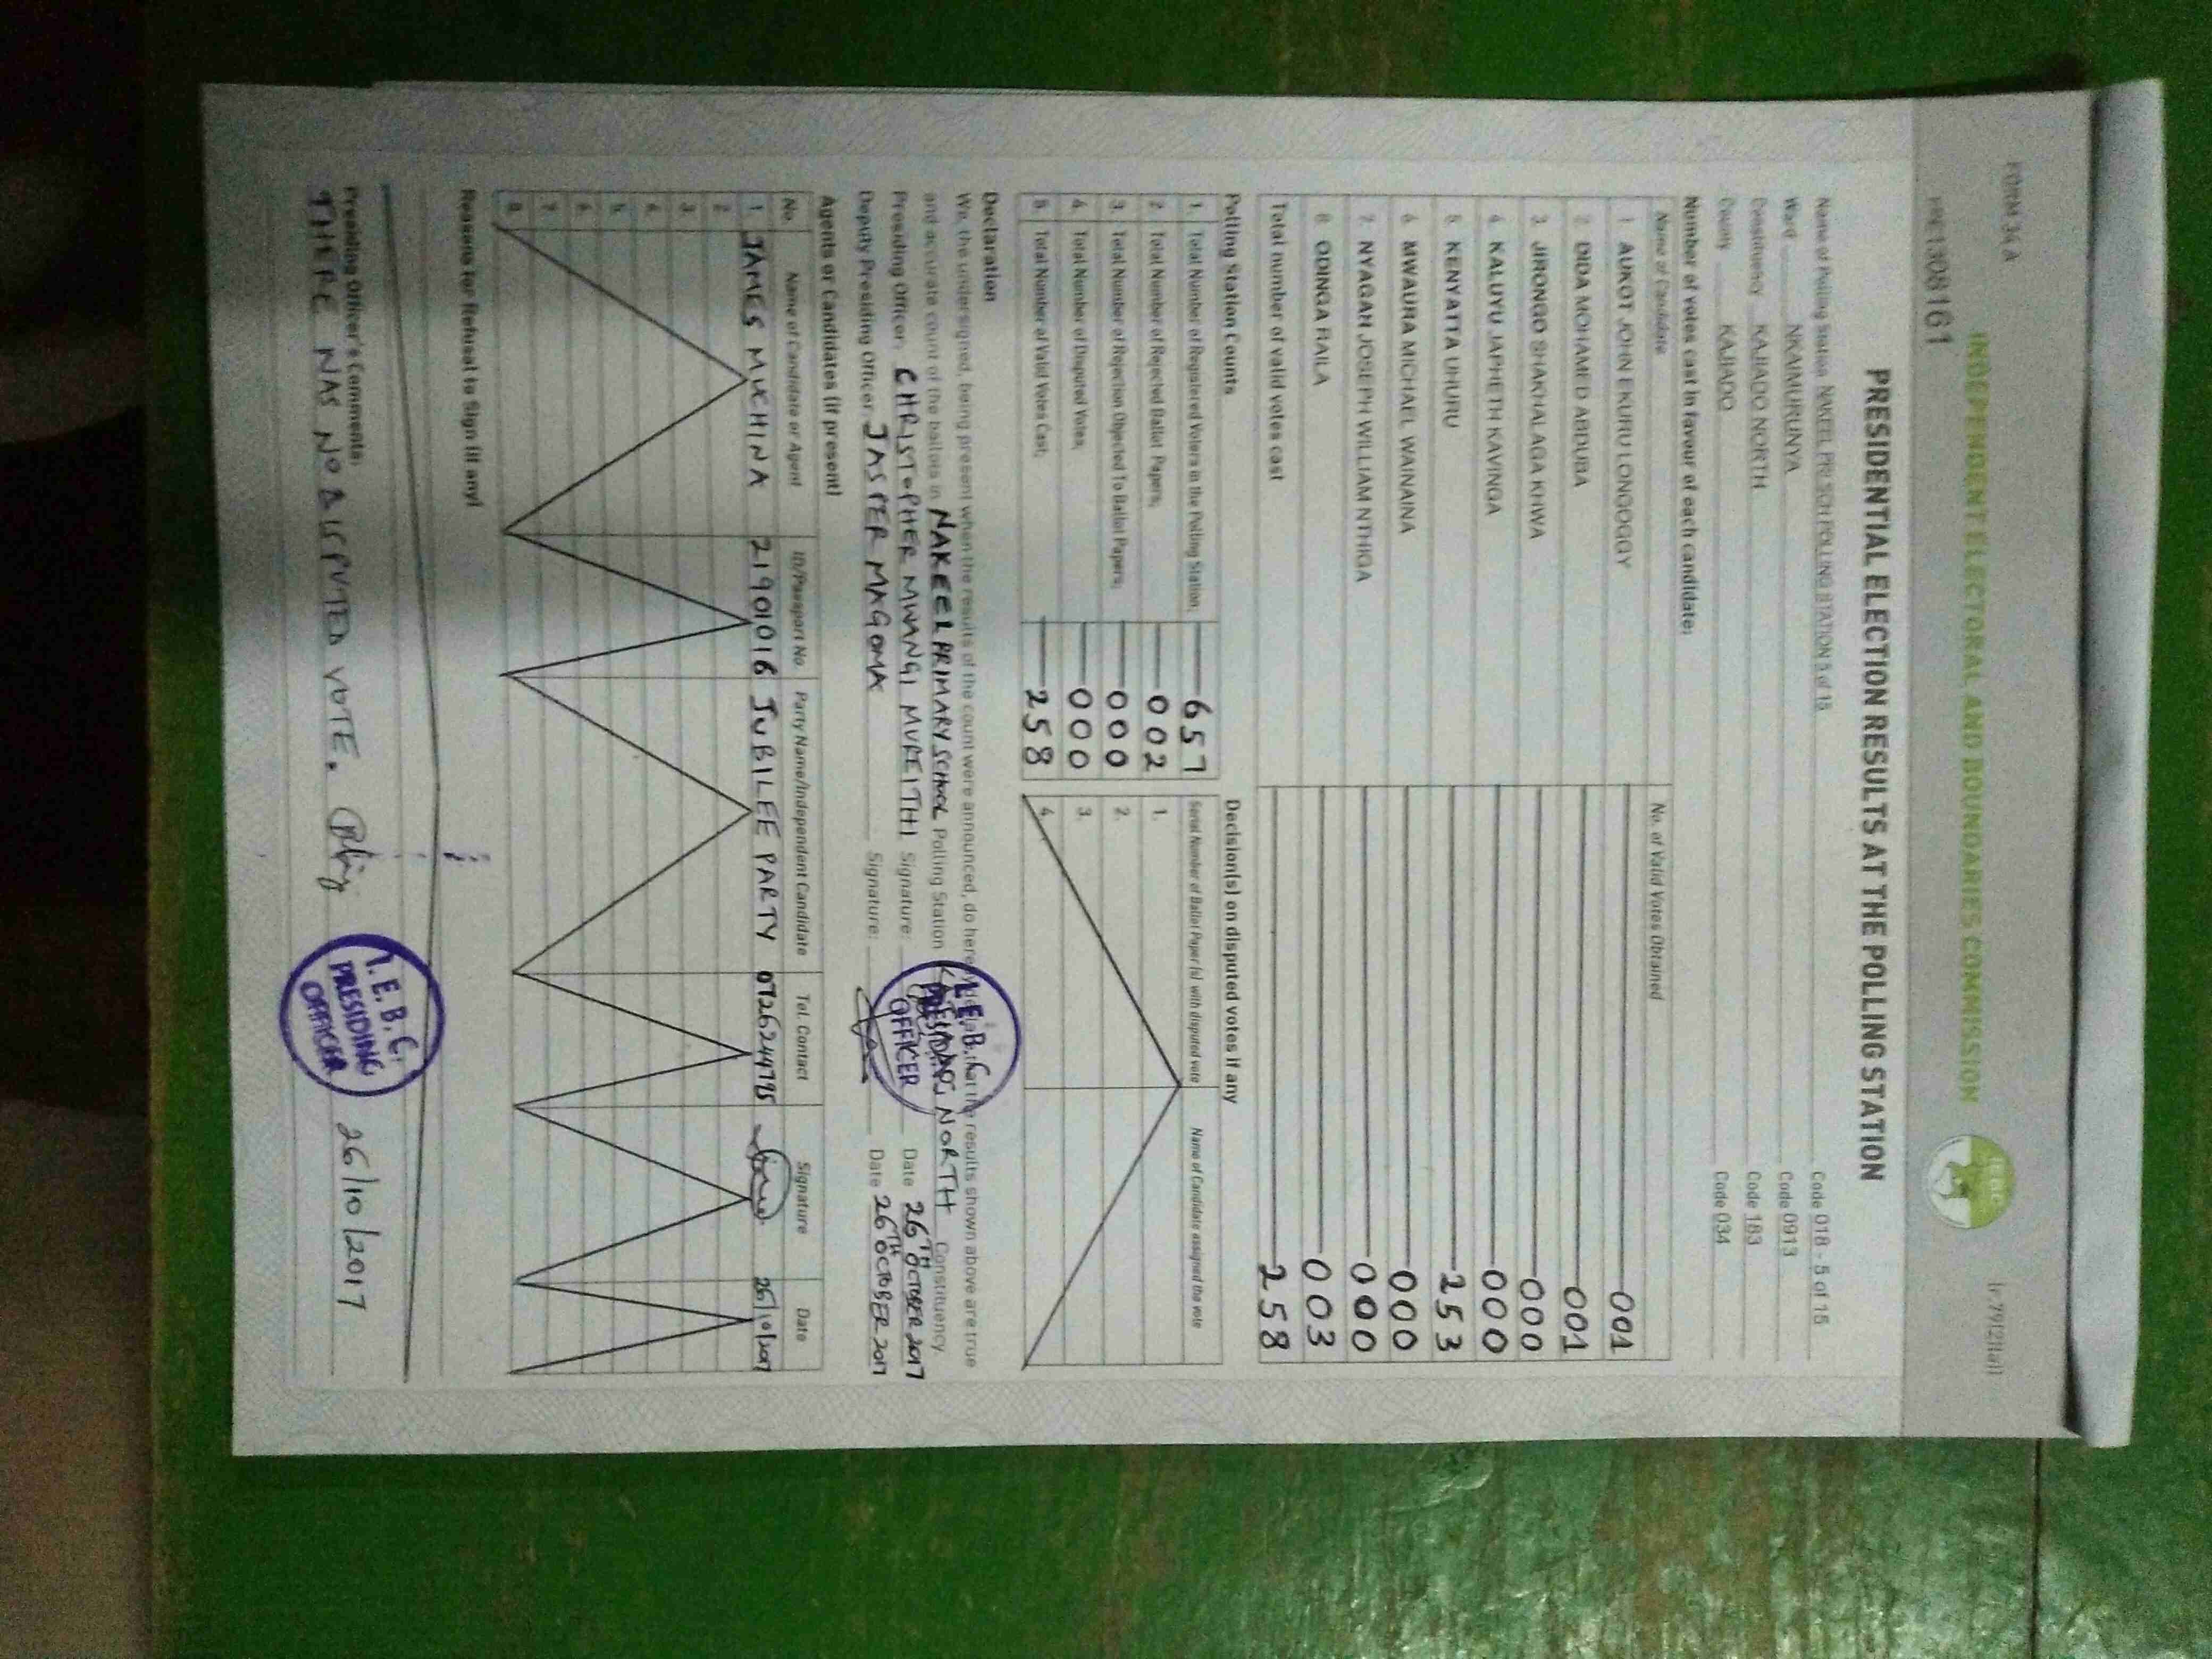 FORM 34 A
(r.79(2)(a))
INDEPENDENT ELECTORAL AND BOUNDARIES COMMISSION
iebc
PRESIDENTIAL ELECTION RESULTS AT THE POLLING STATION
Name of Polling Station NAKEEL PRI SCH POLLING STATION 5 of 15 Code 018 - 5 of 15
Ward NKAIMURUNYA Code 0913
Constituency KAJIADO NORTH Code 183
County KAJIADO Code 034
Number of votes cast in favour of each candidate:
Name of Candidate No. of Valid Votes Obtained
1 AUKOT JOHN EKURU LONGOGGY 001
2 DIDA MOHAMED ABDUBA 001
3 JIRONGO SHAKHALAGA KHWA 000
4 KALUYU JAPHETH KAVINGA 000
5 KENYATTA UHURU 253
6 MWAURA MICHAEL WAINAINA 000
7 NYAGAH JOSEPH WILLIAM NTHIGA 000
8 ODINGA RAILA 003
Total number of valid votes cast 258
Polling Station Counts
1. Total Number of Registered Voters in the Polling Station; 657
2. Total Number of Rejected Ballot Papers; 002
3. Total Number of Rejection Objected To Ballot Papers; 000
4. Total Number of Disputed Votes; 000
5. Total Number of Valid Votes Cast; 258
Decision(s) on disputed votes if any
Serial Number of Ballot Paper (s) with disputed vote Name of Candidate assigned the vote
1.
2.
3.
4.
Declaration
We, the undersigned, being present when the results of the count were announced, do hereby declare that the results shown above are true
and accurate count of the ballots in NAKEEL PRIMARY SCHOOL Polling Station KAJIADO NORTH Constituency.
Presiding Officer: CHRISTOPHER MWANGI MUREITHI Signature: Date 26TH OCTOBER 2017
Deputy Presiding Officer JASPER MAGOMA Signature: Date 26TH OCTOBER 2017
I.E.B.C
PRESIDING
OFFICER
Agents or Candidates (if present)
No. Name of Candidate or Agent ID/Passport No Party Name/Independent Candidate Tel. Contact Signature Date
1. JAMES MUCHINA 21901016 JUBILEE PARTY 0726244785 26/10/2017
2
3
4
5
6
7
8
Reasons for Refusal to Sign (if any)
Presiding Officer's Comments:
THERE WAS NO DISPUTED VOTE. 26/10/2017
I.E.B.C.
PRESIDING
OFFICER